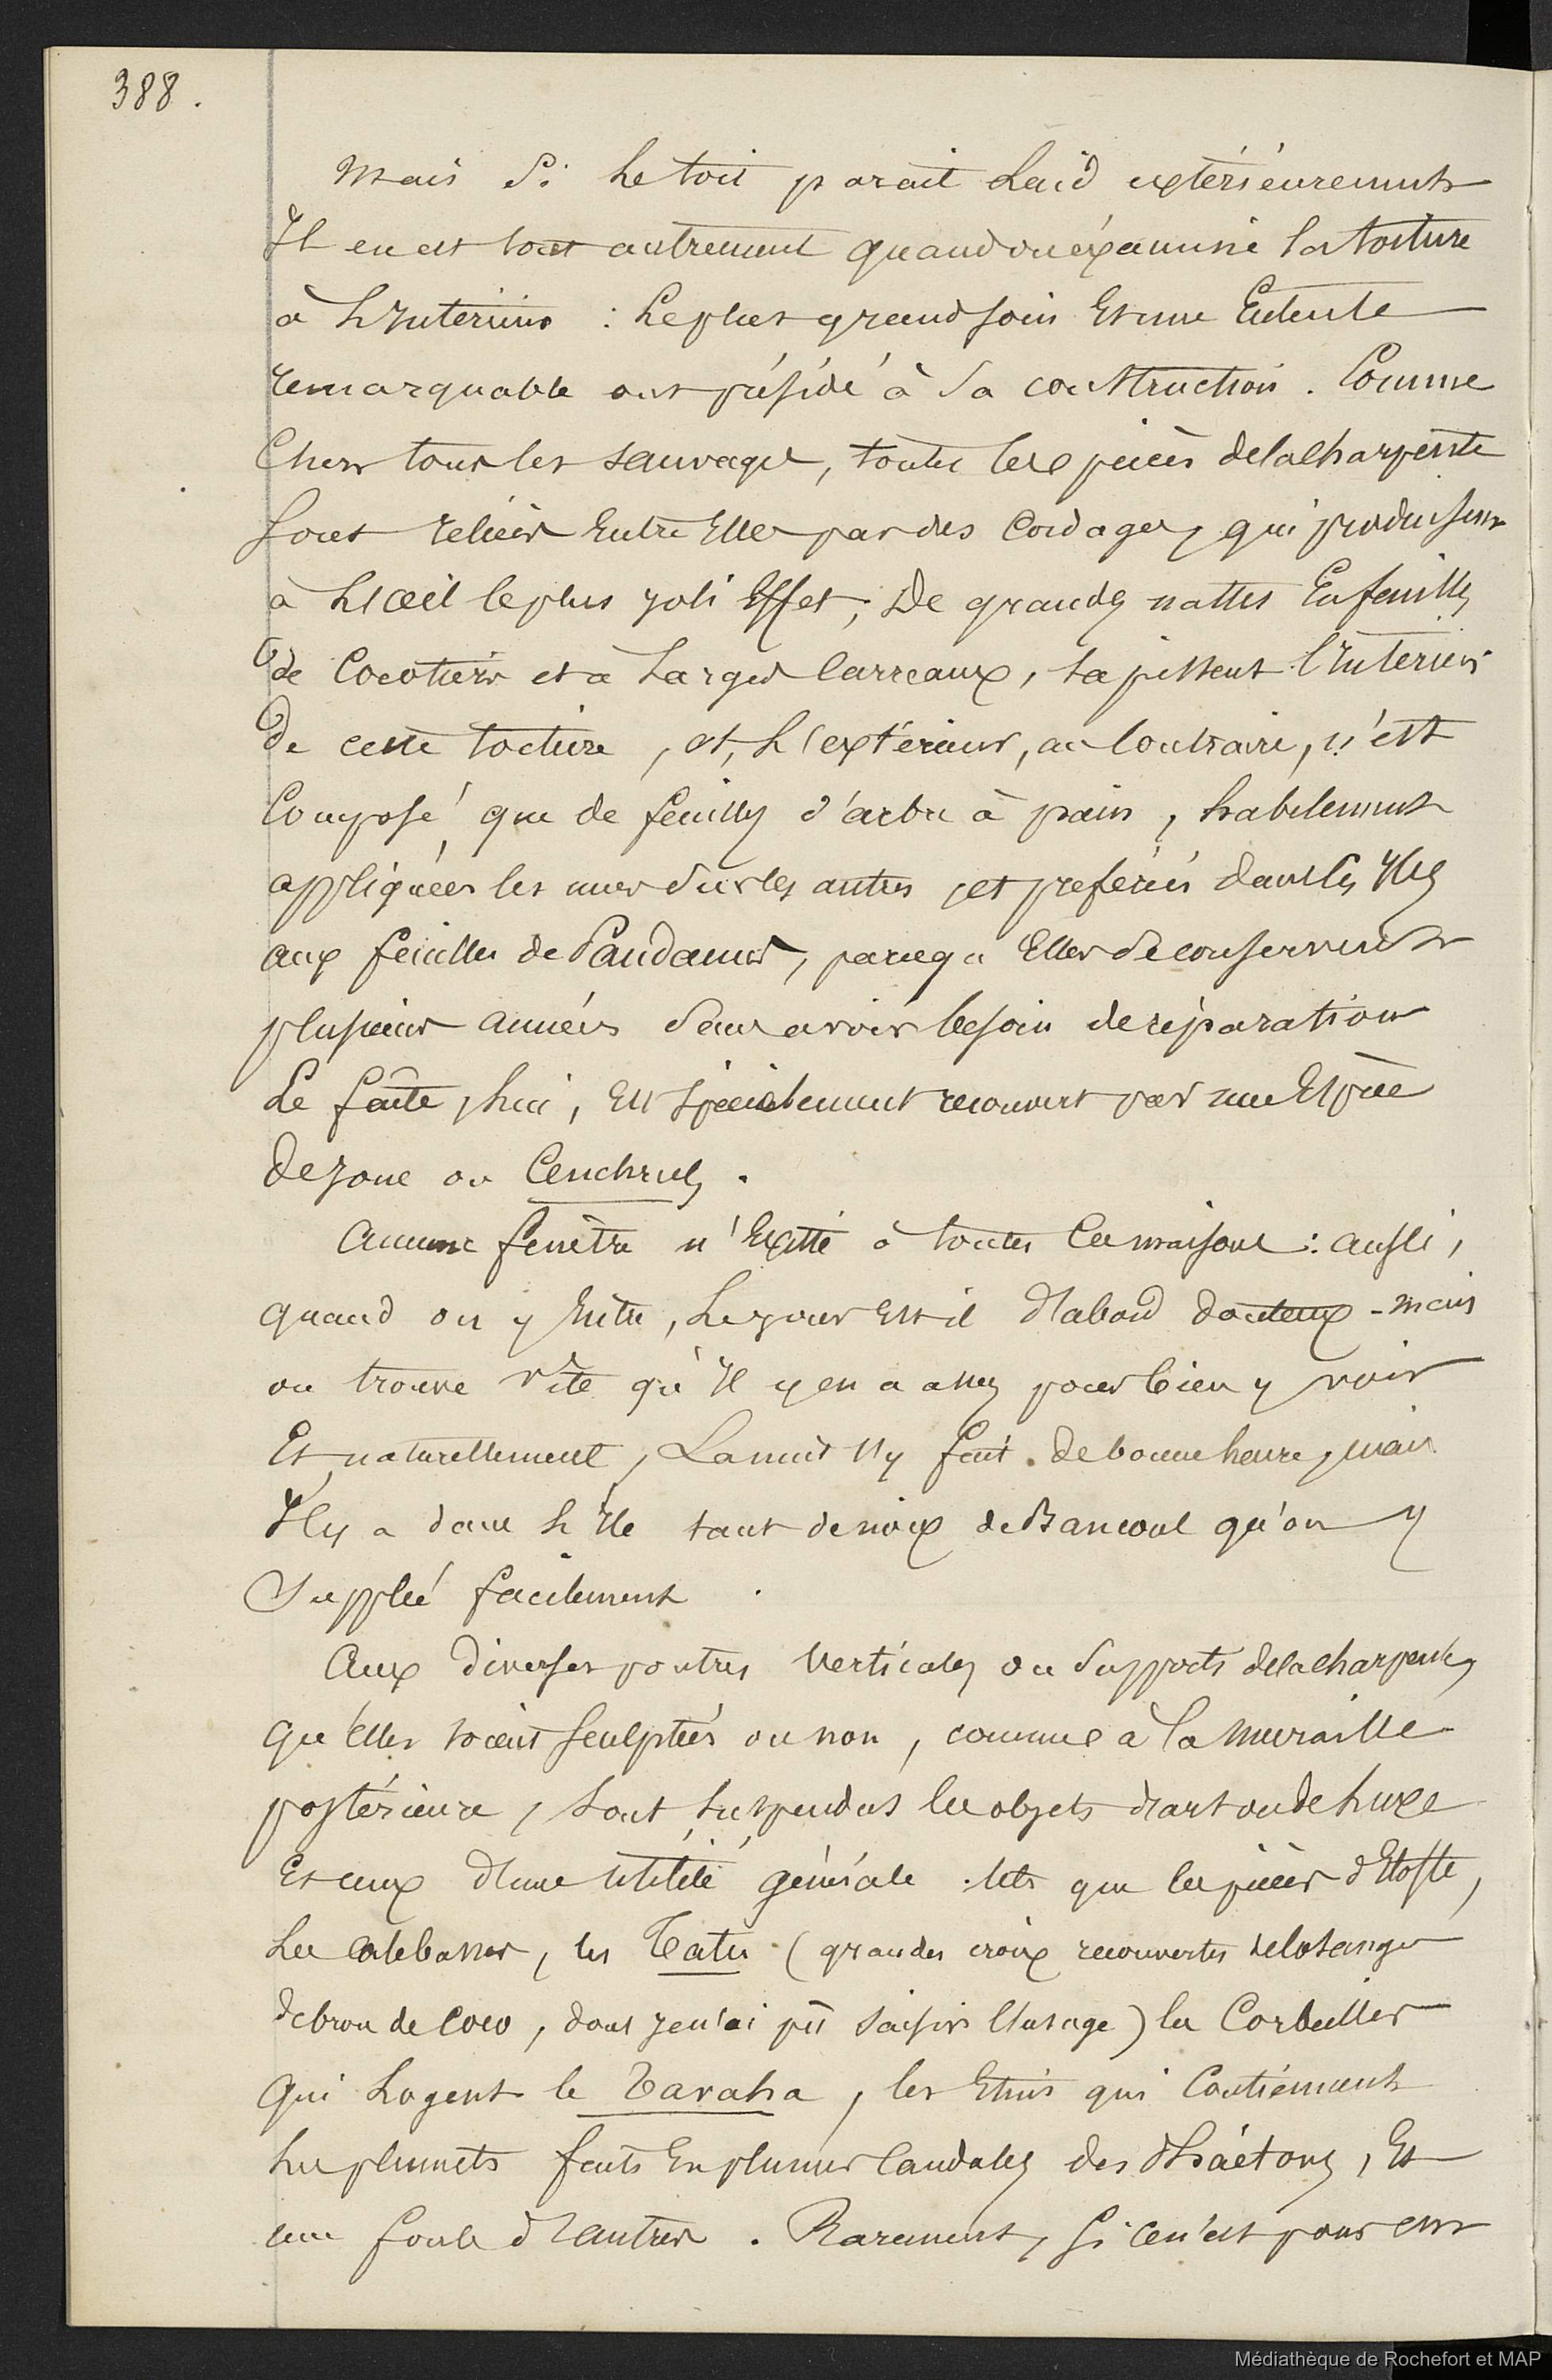 388.
Mais si le toit parait laid extérieurement
Il en est tout autrement quand on éxamine la toiture
à l'Intérieur : le plus grand soin Et une Entente
remarquable ont présidé à sa construction. Comme
Chez tous les sauvages, toutes les pièces de la charpente
sont reliées Entre Elles par des cordages, qui produisent
à l'œil le plus joli Effet; De grandes nattes En feuilles
de Cocotiers et à larges Carreaux, tapissent l'Intérieur
de cette toiture, et, l'extérieur, au Contraire, n'est
Composé que de feuilles d'arbre à pain, habilement
appliquées les unes sur les autres et preférées dans les Iles
aux feuilles de Pandanus, parcequ'Elles se conservent
plusieurs années sans avoir besoin de réparation
Le faîte, lui, Est spécialement recouvert par une Espèce
de jonc ou Cenchrus.
Aucune fenêtre n'Existe à toutes Ces maisons : aussi,
quand on y Entre, le jour Est-il d'abord douteux - mais
on trouve vîte qu'Il y en a assez pour bien y voir
Et naturellement, La nuit s'y fait de bonne heure, mais
Il y a dans l'Ile tant de noix de Bancoul qu'on y
supplée facilement.
Aux diverses poutres Verticales ou supports de la charpente,
qu'elles soient sculptées ou non, comme à la muraille
postérieure, sont suspendus les objets d'art ou de luxe
Et ceux d'une utilité générale. tels que les pièces d'Etoffe,
les calebasses, les Tatu (grandes croix recouvertes de losanges
de brou de Coco, dont je n'ai pû saisir l'usage) les Corbeilles
qui logent le Tavaha, les Etuis qui Contiennent
les plumets faits En plumes Caudales des Phaétons, Et
une foule d'autres. Rarement, si ce n'est pour en
Médiathèque de Rochefort et MAP